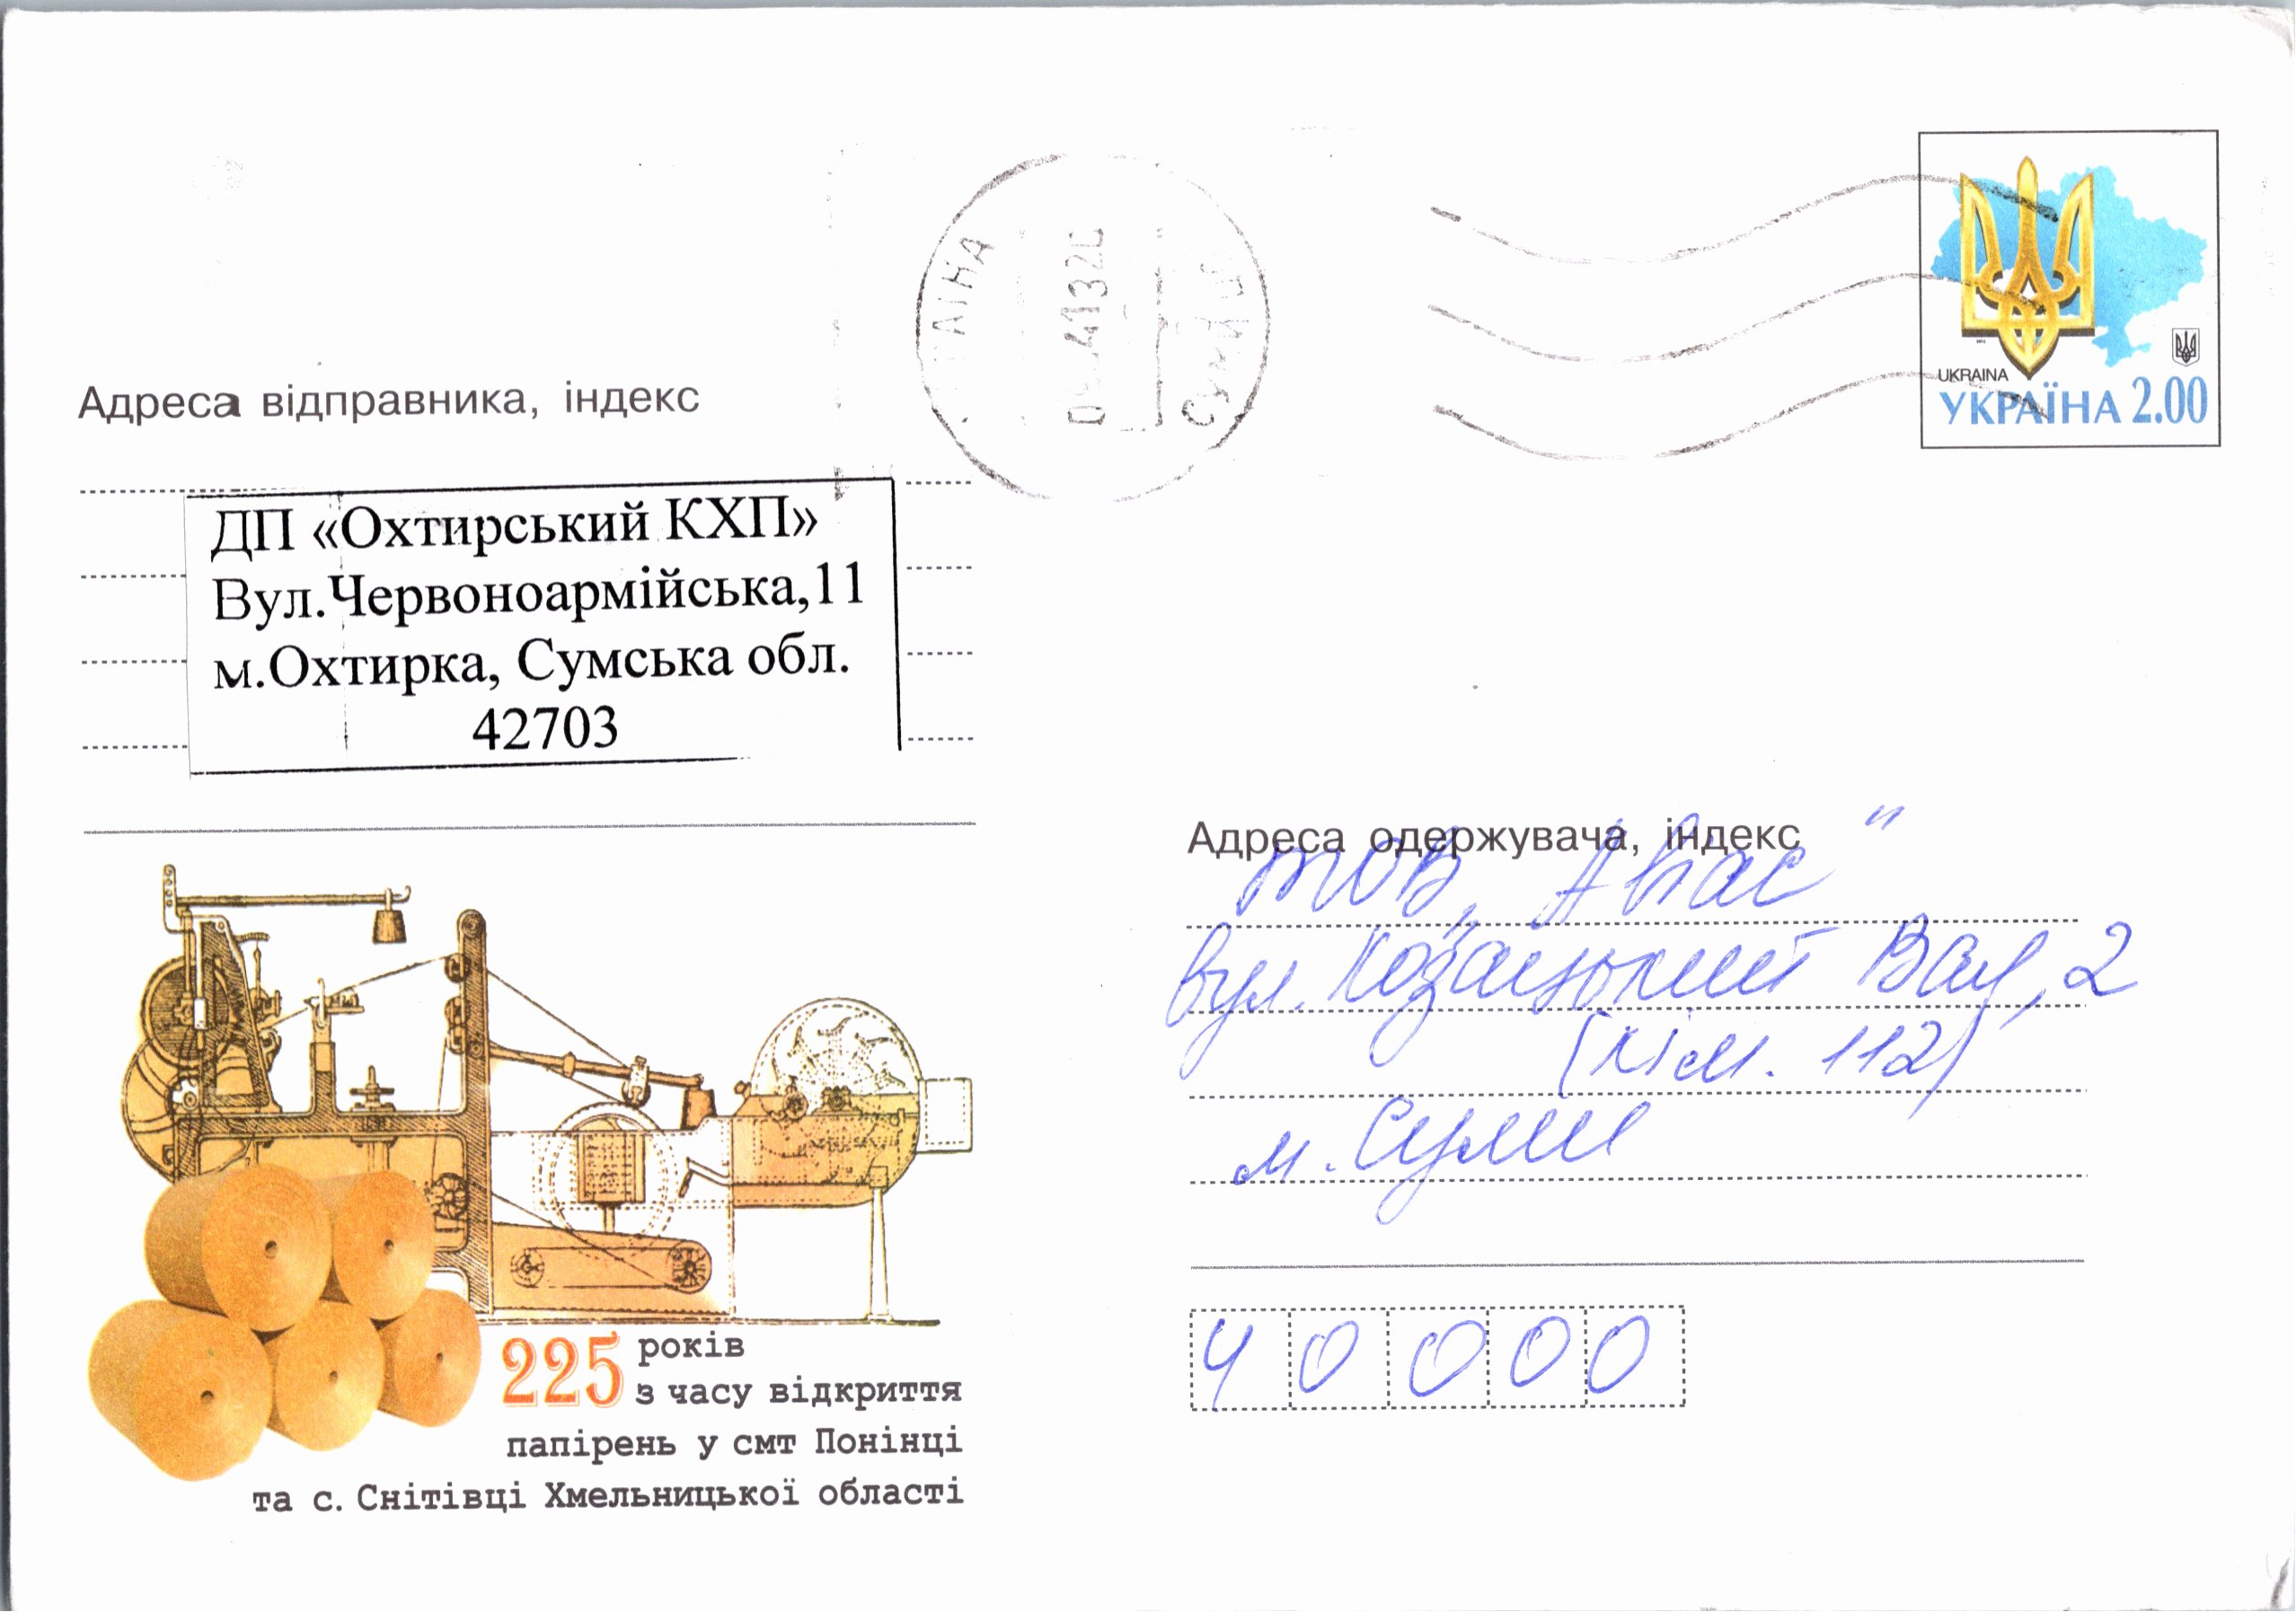 Адреса відправника, індекс
ДП «Охтирський КХП»
Вул.Червоноармійська,11
м.Охтирка, Сумська обл.
42703
СУМИ
UKRAINA
УКРАЇНА 2.00
Адреса одержувача, індекс
ТОВ „Авіас"
вул. Козацький Вал, 2
(кім. 112)
м. Суми
40000
225 років
з часу відкриття
папірень у смт Понінці
та с. Снітівці Хмельницької області